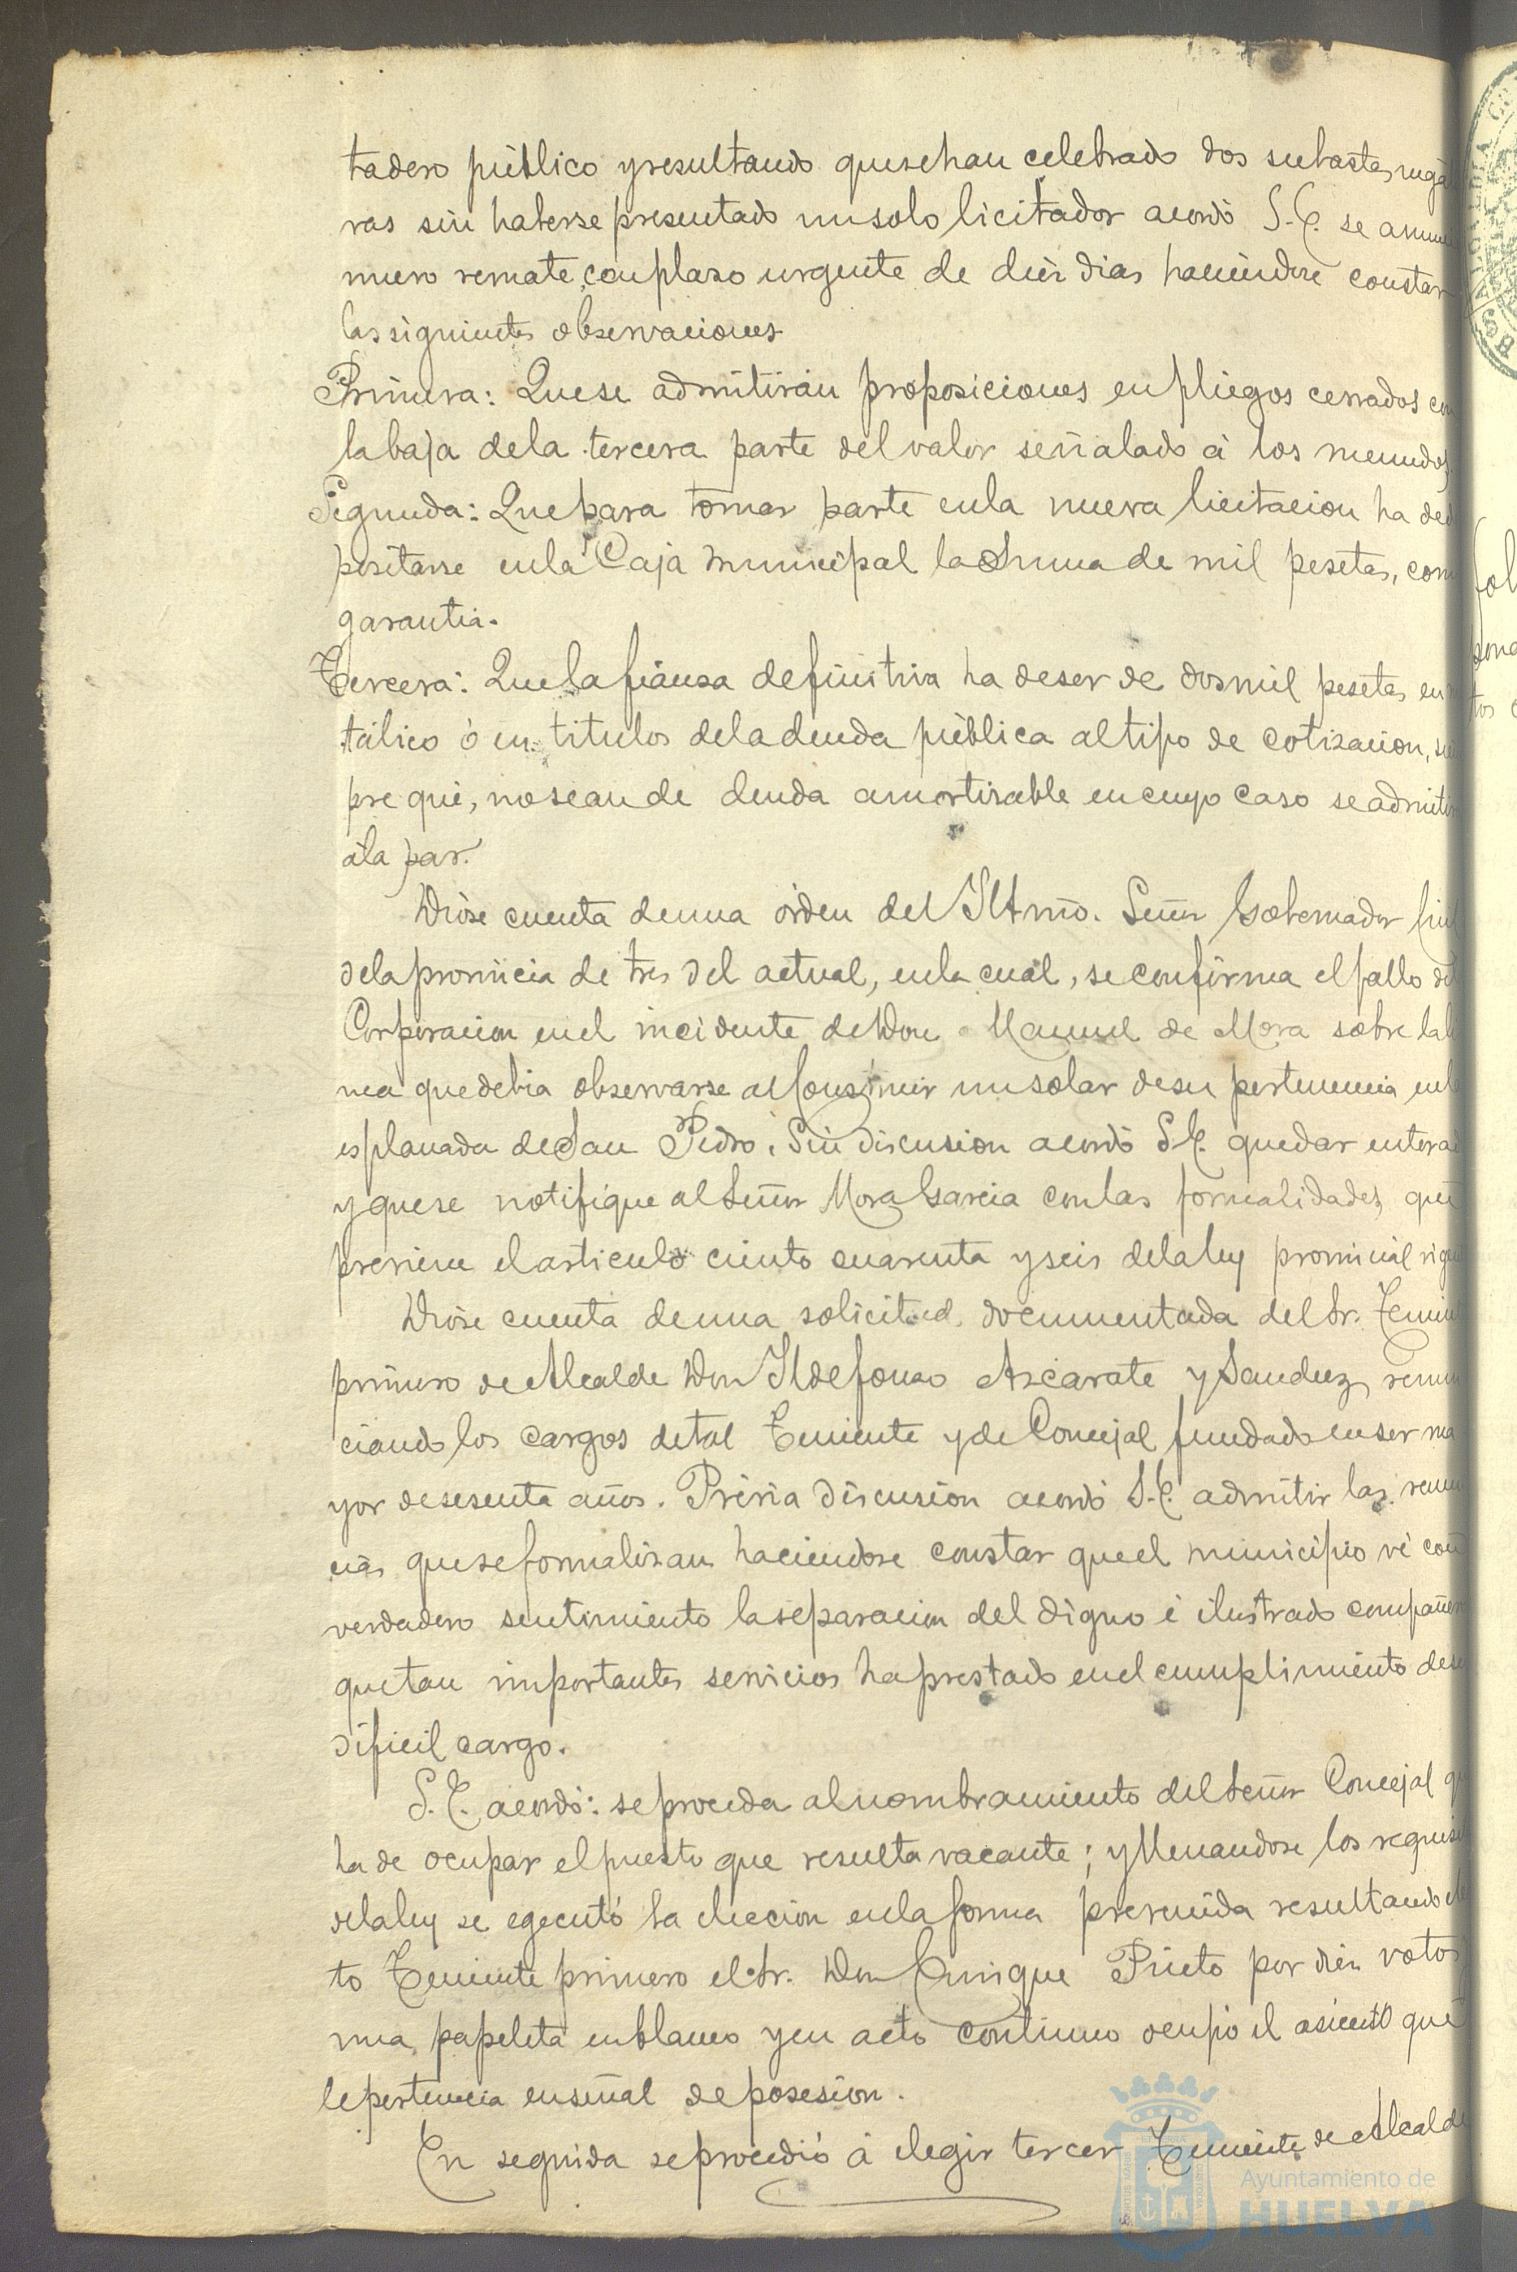 tadero público y resultando que se han celebrado dos subastas
ras sin haberse presentado un solo licitador acordó S.E. se anun
nuevo remate, con plazo urgente de diéz dias haciendose constar
las siguientes observaciones
Primera: Que se admitirán proposiciones en pliegos cerrados con
la baja de la tercera parte del valor señalado á los menudos
Segunda: Que para tomar parte en la nueva licitacion ha de
positarse en la Caja municipal la suma de mil pesetas, com
garantia.
Tercera: Que la fianza definitiva ha de ser de dos mil pesetas en
tálico ó en titulos de la deuda pública al tipo de cotizacion,
pre que, no sean de deuda amortizable en cuyo caso se admitir
á la par.
Dióse cuenta de una órden del Iltmo. Señor Gobernador Civil
de la provincia de tres del actual, en la cual, se confirma el fallo de
Corporacion en el incidente de Don Manuel de Mora sobre la
nea que debia observarse al construir un solar de su pertenencia en
esplanada de San Pedro. Sin discusion acordó S.E. quedar enterad
y que se notifique al Señor Mora Garcia con las formalidades que
previene el articulo ciento cuarenta y seis de la ley provincial vig
Dióse cuenta de una solicitud documentada del Sr. Tenien
primero de Alcalde Don Ildefonso Azcárate y Sanchez, renun
ciando los cargos de tal Teniente y de Concejal fundado en ser ma
yor de sesenta años. Prévia discusion acordó S.E. admitir las renun
cias que se formalizan haciendose constar que el municipio vé con
verdadero sentimiento la separacion del digno é ilustrado compañero
que tan importantes servicios ha prestado en el cumplimiento de su
dificil cargo.
S.E. acordó: se proceda al nombramiento del Señor Concejal q
ha de ocupar el puesto que resulta vacante; y llenandose los requisi
de la ley se egecutó la eleccion en la forma prevenida resultando ele
to Teniente primero el Sr. Don Enrique Prieto por diéz votos
una papeleta en blanco y en acto continuo ocupó el asiento que
le pertenecia en señal de posesion.
En seguida se procedió á elegir tercer Teniente de Alcalde
Ayuntamiento de
HUELVA